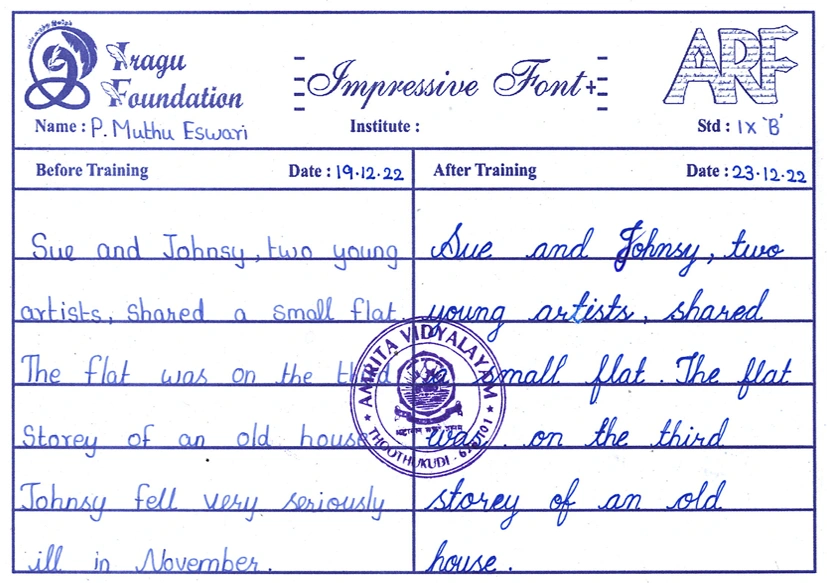 Iragu
Foundation
Impressive Font+
ARF
Name : P. Muthu Eswari
Institute :
Std : IX 'B'
Before Training
Date : 19.12.22
After Training
Date : 23.12.22
Sue and Johnsy, two young
artists, shared a small flat.
The flat was on the third
Storey of an old house
Johnsy fell very seriously
ill in November.
Sue and Johnsy, two
young artists, shared
a small flat. The flat
was on the third
storey of an old
house.
AMRITA VIDYALAYAM
THOOTHUKUDI